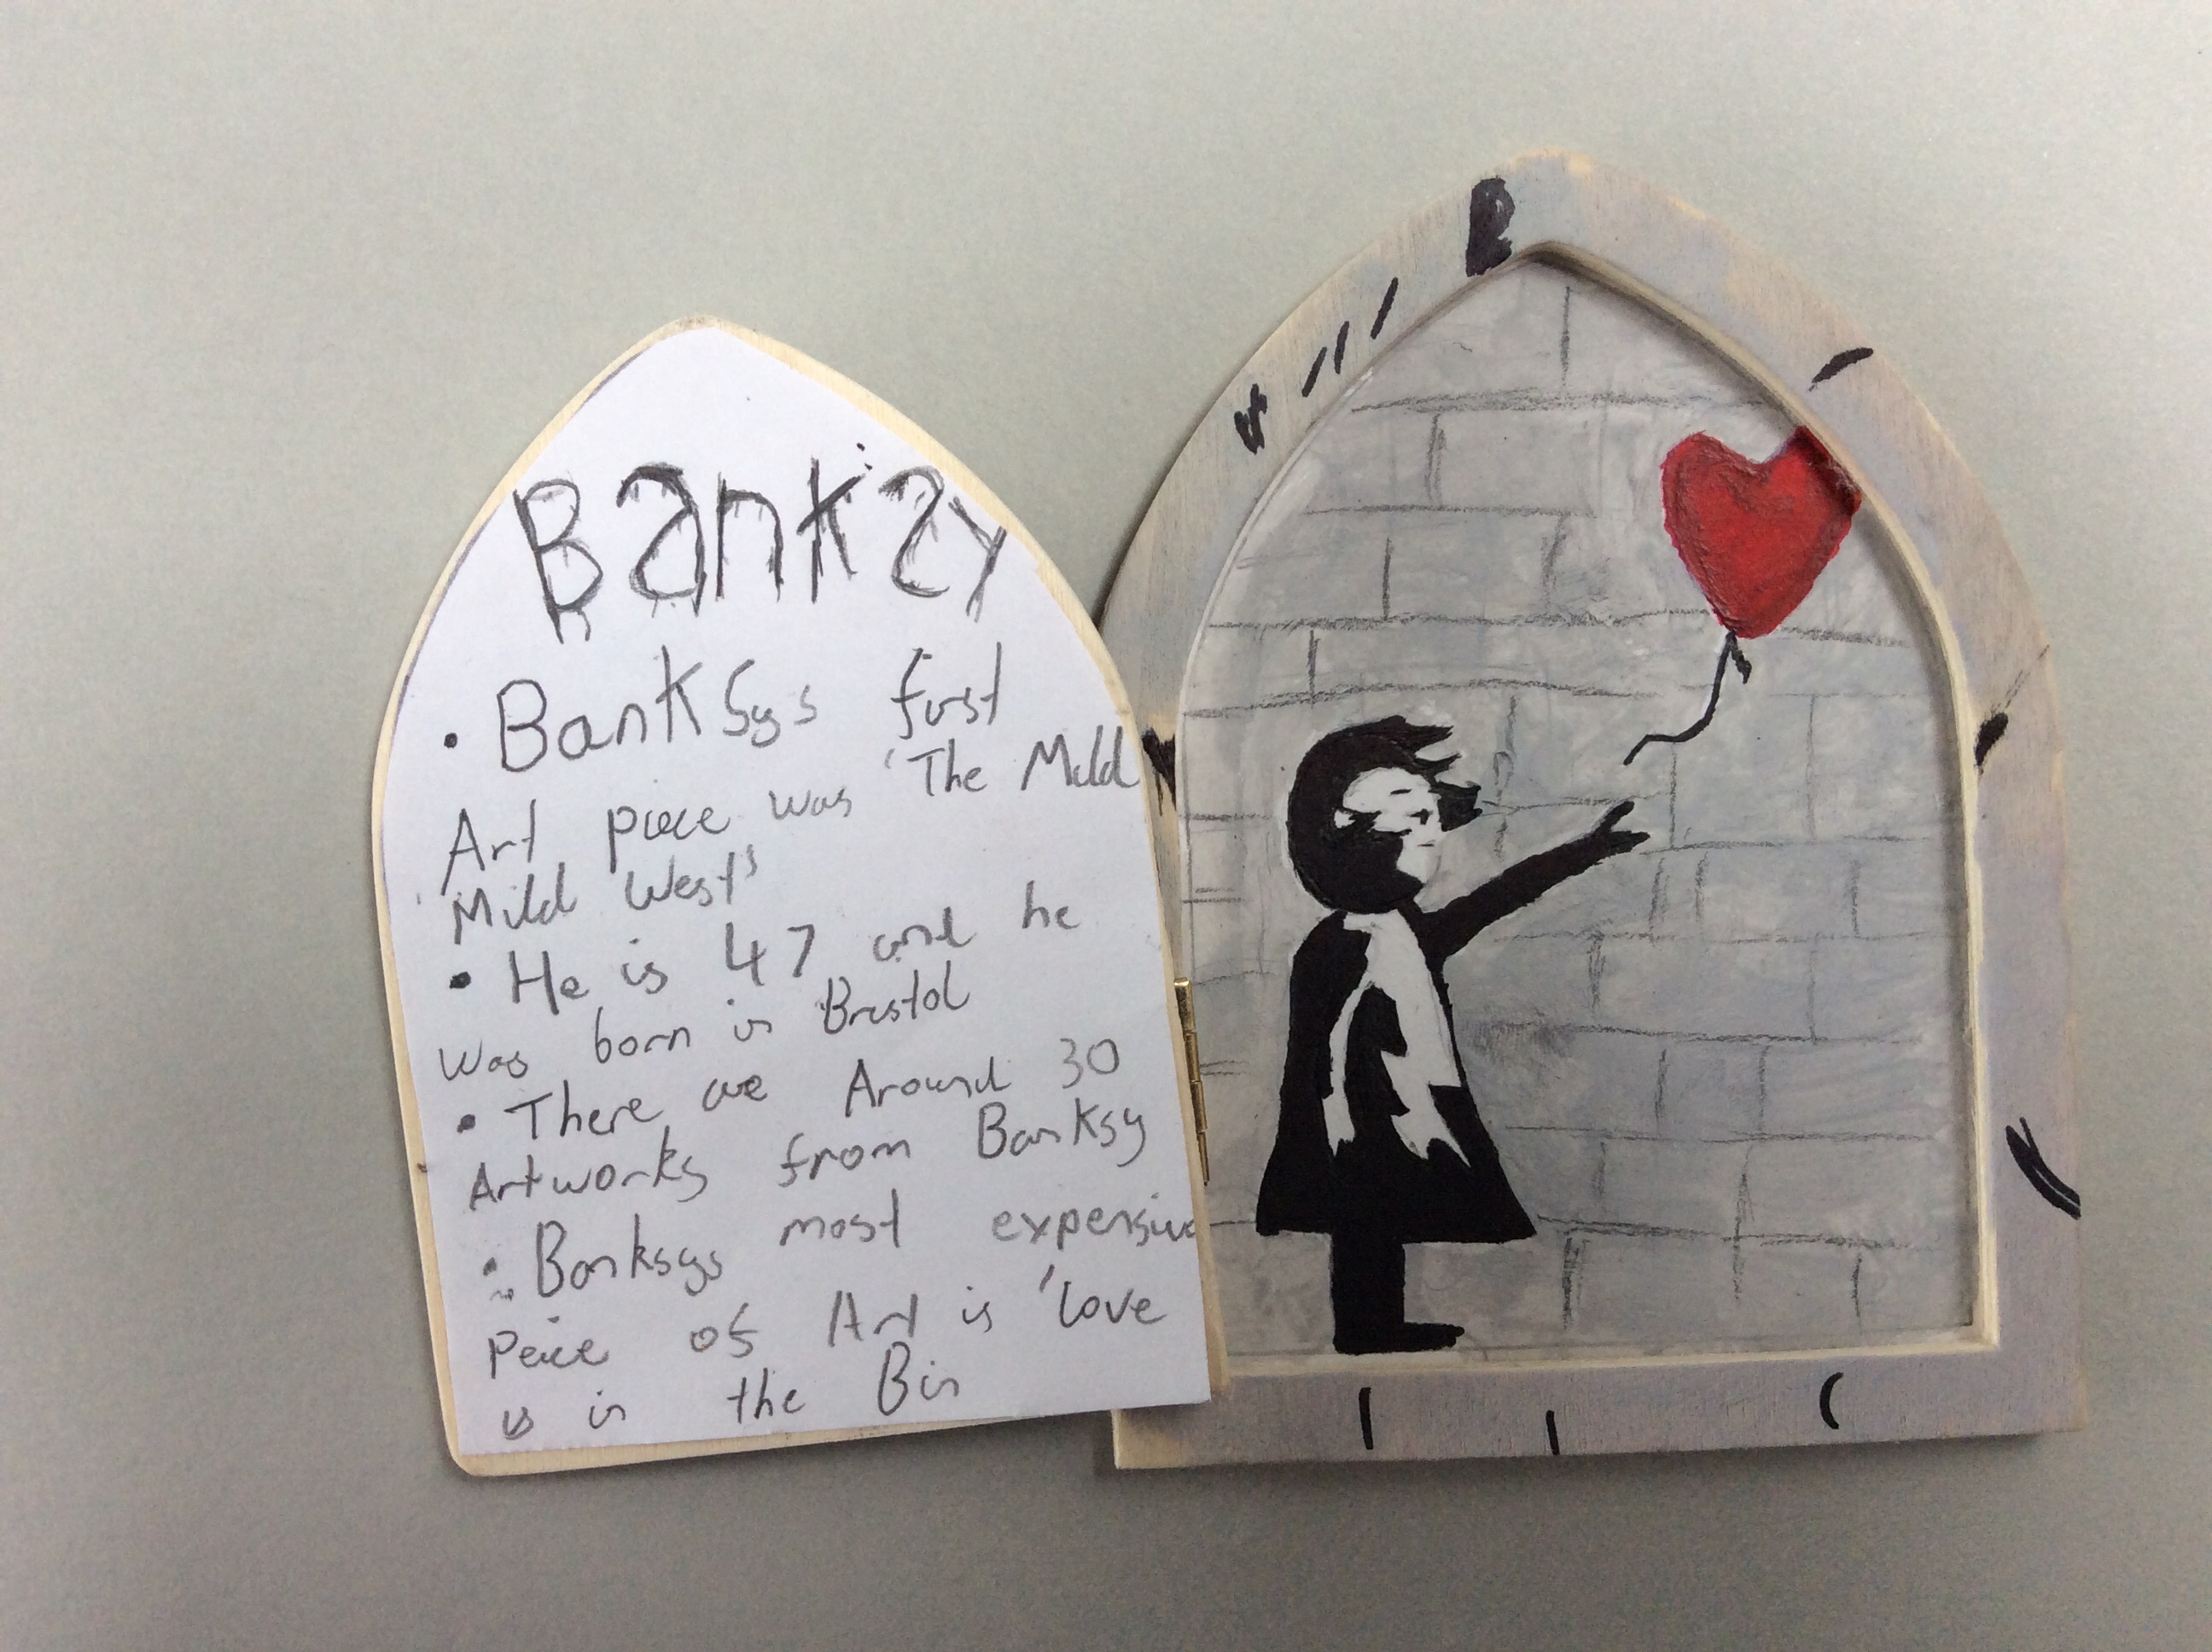 Banksy
• Banksys first
Art piece was 'The Mild
'Mild West'
• He is 47 and he
was born in Bristol
• There are Around 30
Artworks from Banksy
• Banksys most expensive
peice of Art is 'Love
is in the Bin